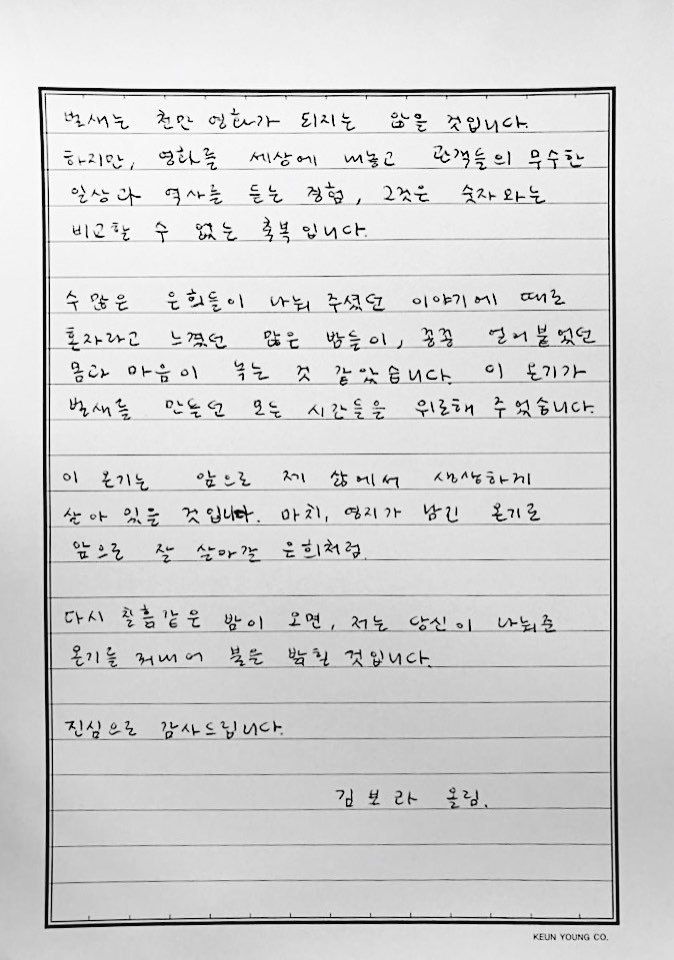 벌새는 천만 영화가 되지는 않을 것입니다.
하지만, 영화를 세상에 내놓고 관객들의 무수한
일상과 역사를 듣는 경험, 그것은 숫자와는
비교할 수 없는 축복입니다.
수많은 은희들이 나눠 주셨던 이야기에 때로
혼자라고 느꼈던 많은 밤들이, 꽁꽁 얼어붙었던
몸과 마음이 녹는 것 같았습니다. 이 온기가
벌새를 만들던 모든 시간들을 위로해 주었습니다.
이 온기는 앞으로 제 삶에서 생생하게
살아 있을 것입니다. 마치, 영지가 남긴 온기로
앞으로 잘 살아갈 은희처럼.
다시 칠흙같은 밤이 오면, 저는 당신이 나눠준
온기를 꺼내어 불을 밝힐 것입니다.
진심으로 감사드립니다.
김보라 올림.
KEUN YOUNG CO.